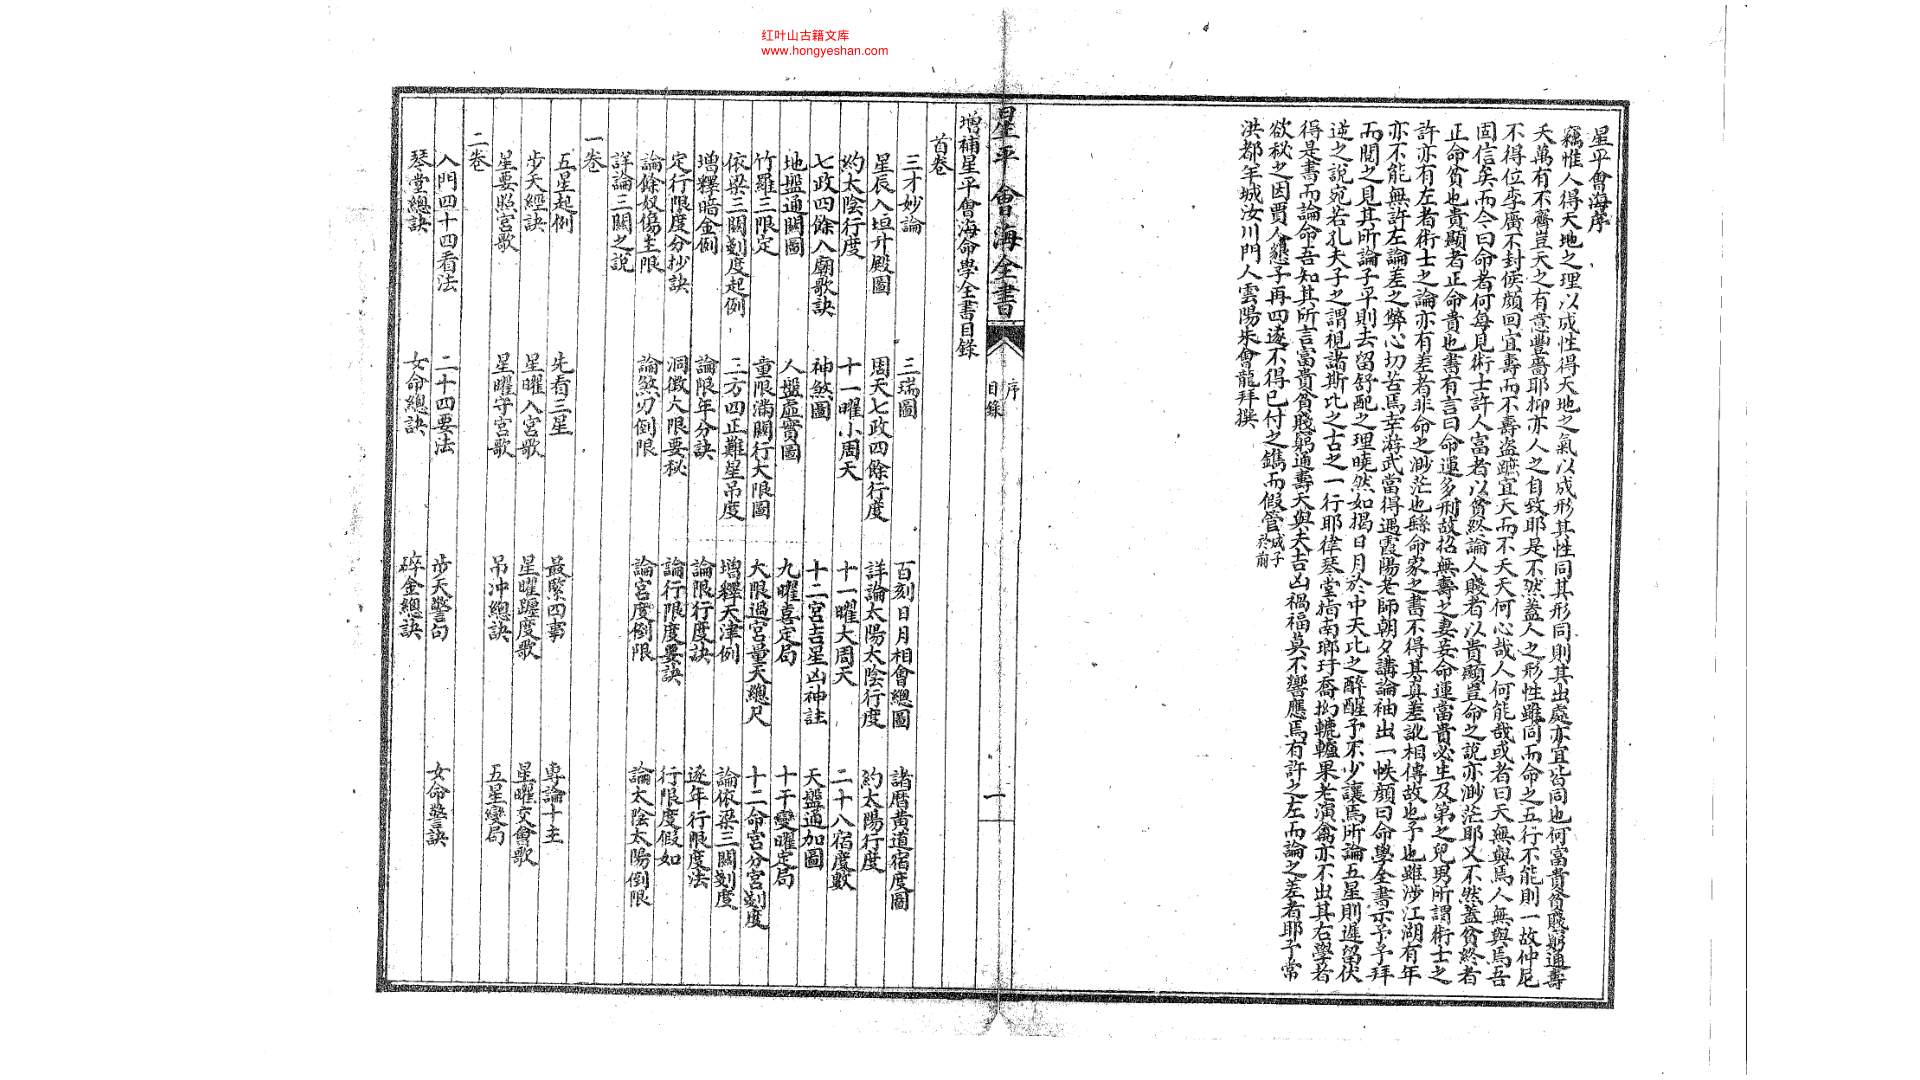 红叶山古籍文库
www.hongyeshan.com
星平會海序
竊惟人得天地之理以成性得天地之氣以成形其性同其形同則其出處亦宜皆同也何富貴貧賤窮通壽
夭萬有不齊豈天之有意豐嗇耶抑亦人之自致耶是不然蓋人之形性雖同而命之五行不能則一故仲尼
不得位李廣不封侯顔回宜壽而不壽盗蹠宜夭而不夭天何心哉人何能哉或者曰天無與焉人無與焉吾
固信矣而今曰命者何每見術士許人富者以貧終論人賤者以貴顯豈命之說亦渺茫耶又不然蓋貧終者
正命貧也貴顯者正命貴也書有言曰命運多刑故招無壽之妻妾命運當貴必生及第之兒男所謂術士之
許亦有左者術士之論亦有差者非命之渺茫也繇命家之書不得其真差訛相傳故也予也雖涉江湖有年
亦不能無許左論差之弊心切苦焉幸游武當得遇霞陽老師朝夕講論袖出一帙顔曰命學全書示予予拜
而閱之見其所論子平則去留舒配之理曉然如揭日月於中天比之醉醒子不少讓焉所論五星則遲留伏
逆之說宛若孔夫子之謂視諸斯比之古之一行耶律琴堂指南瑯玕喬拗轆轤果老演禽亦不出其右學者
得是書而論命吾知其所言富貴貧賤窮通壽夭與夫吉凶禍福莫不響應焉有許之左而論之差者耶予常
欲秘之因賈人懇予再四遂不得已付之鐫而假管城子於前
洪都年城汝川門人雲陽朱會龍拜撰
星平會海全書
序
目錄
一
增補星平會海命學全書目錄
首卷
三才妙論 三瑞圖 百刻日月相會總圖 諸曆黄道宿度圖
星辰入垣升殿圖 周天七政四餘行度 詳論太陽太陰行度 約太陽行度
約太陰行度 十一曜小周天 十一曜大周天 二十八宿度數
七政四餘入廟歌訣 神煞圖 十二宮吉星凶神註 天盤通加圖
地盤通關圖 人盤虛實圖 九曜喜定局 十干變曜定局
竹羅三限定 童限滿關行大限圖 大限過宮量天總尺 十二命宮分宮刻度
依梁三關刻度起例 三方四正難星吊度 增釋天津例 論依梁三關刻度
增釋暗金例 論限年分訣 論限行度訣 逐年行限度法
定行限度分抄訣 洞微大限要秘 論行限度要訣 行限度假如
論餘奴傷主限 論煞刃倒限 論宮度倒限 論太陰太陽倒限
詳論三關之說
一卷
五星起例 先看三星 最緊四事 專論十主
步天經訣 星曜入宮歌 星曜躔度歌 星曜交會歌
星要照宮歌 星曜守宮歌 吊冲總訣 五星變局
二卷
入門四十四看法 二十四要法 步天警句 女命警訣
琴堂總訣 女命總訣 碎金總訣